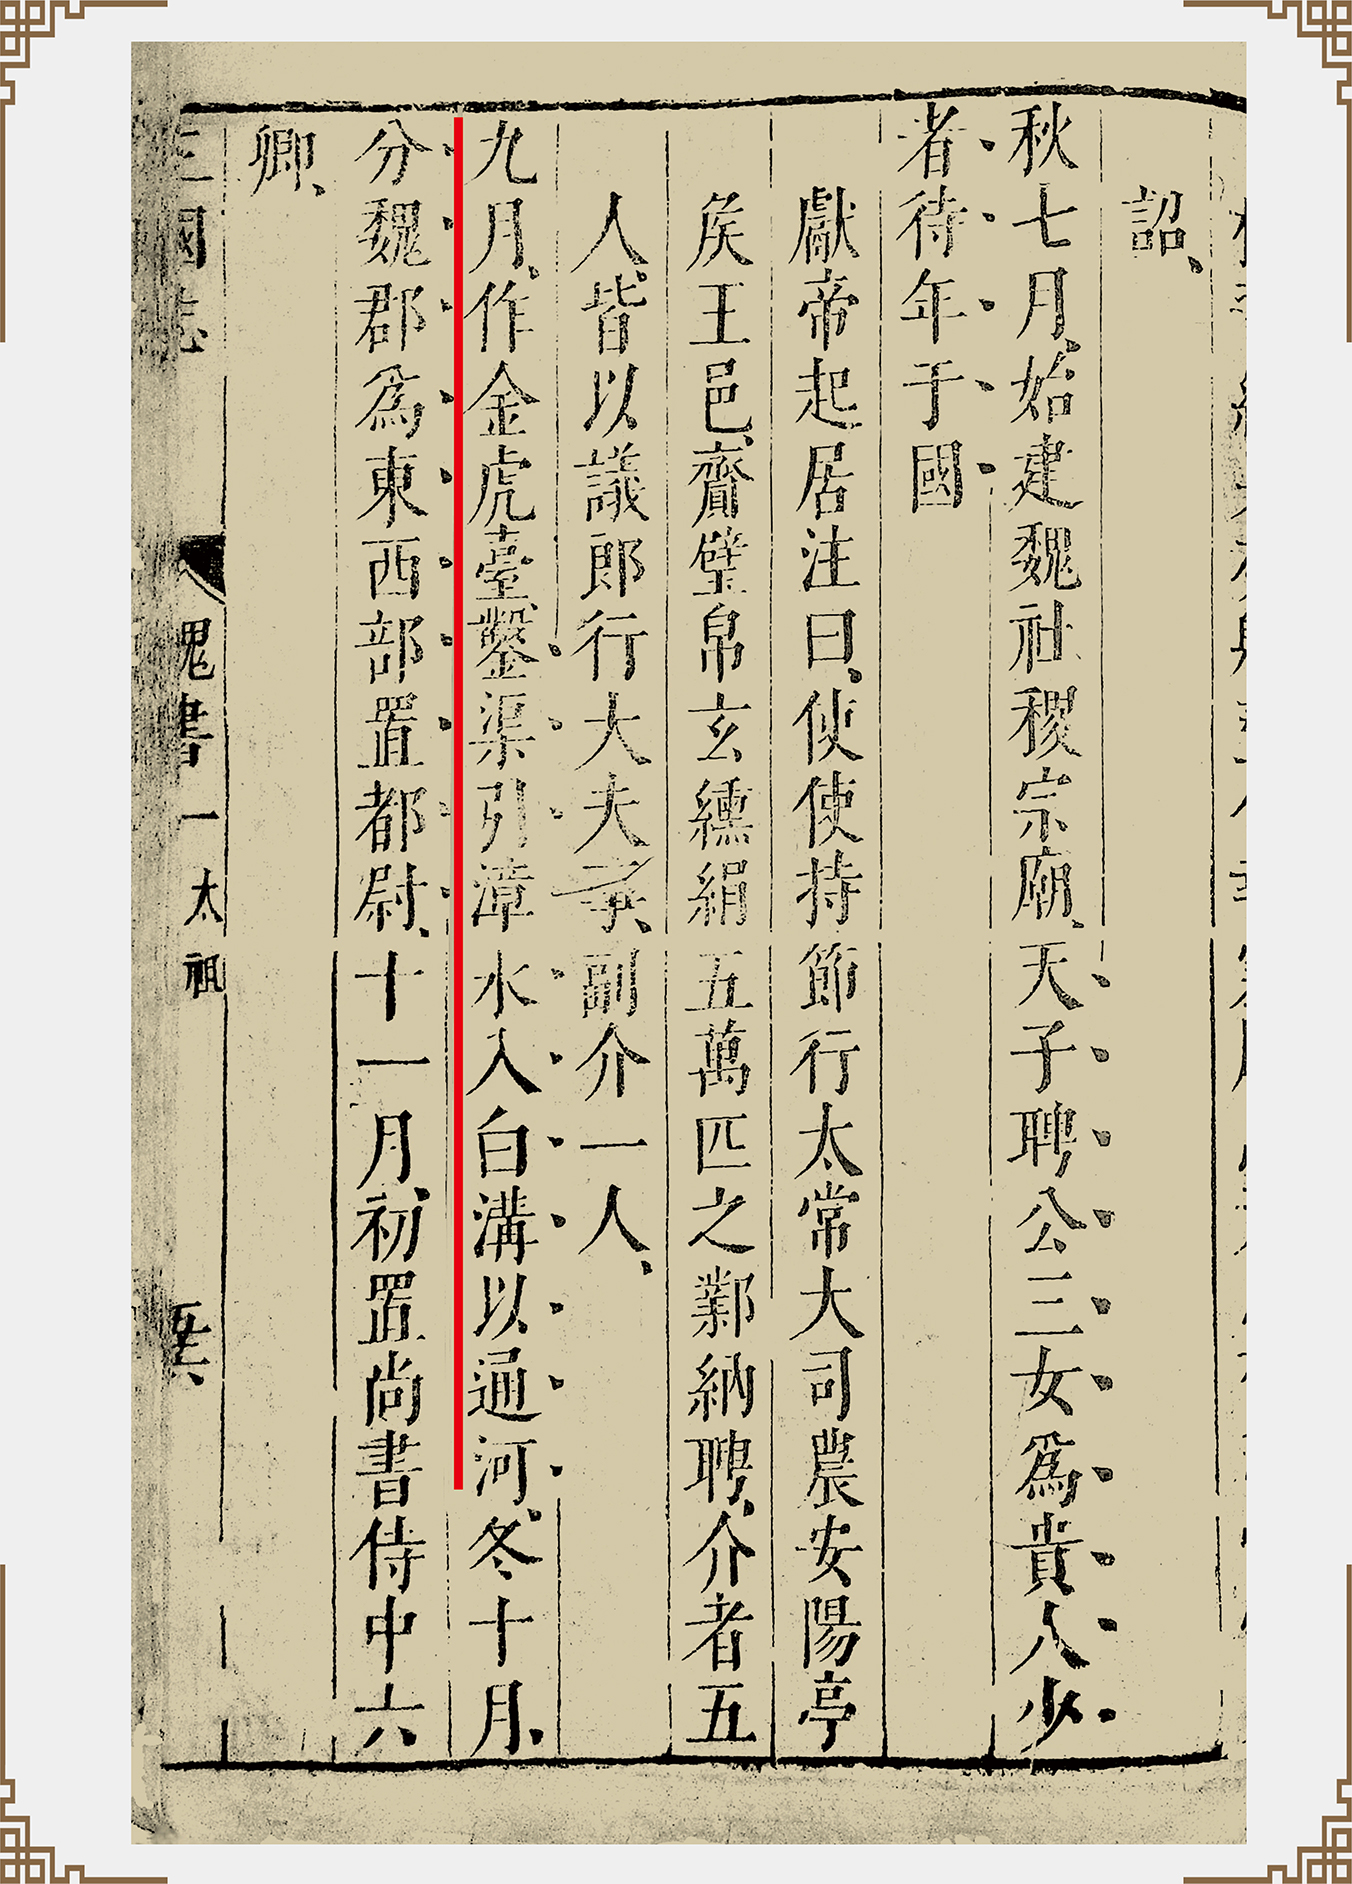 詔、
秋七月、始建魏社稷宗廟、天子聘公三女爲貴人少
者待年于國
獻帝起居注曰、使使持節行太常大司農安陽亭
矦王邑、齎璧帛玄纁絹五萬匹之鄴納聘、介者五
人、皆以議郎行大夫事、副介一人、
九月、作金虎臺、鑿渠引漳水入白溝以通河、冬十月、
分魏郡爲東西部置都尉、十一月、初置尚書侍中六
卿、
三國志 魏書一 太祖